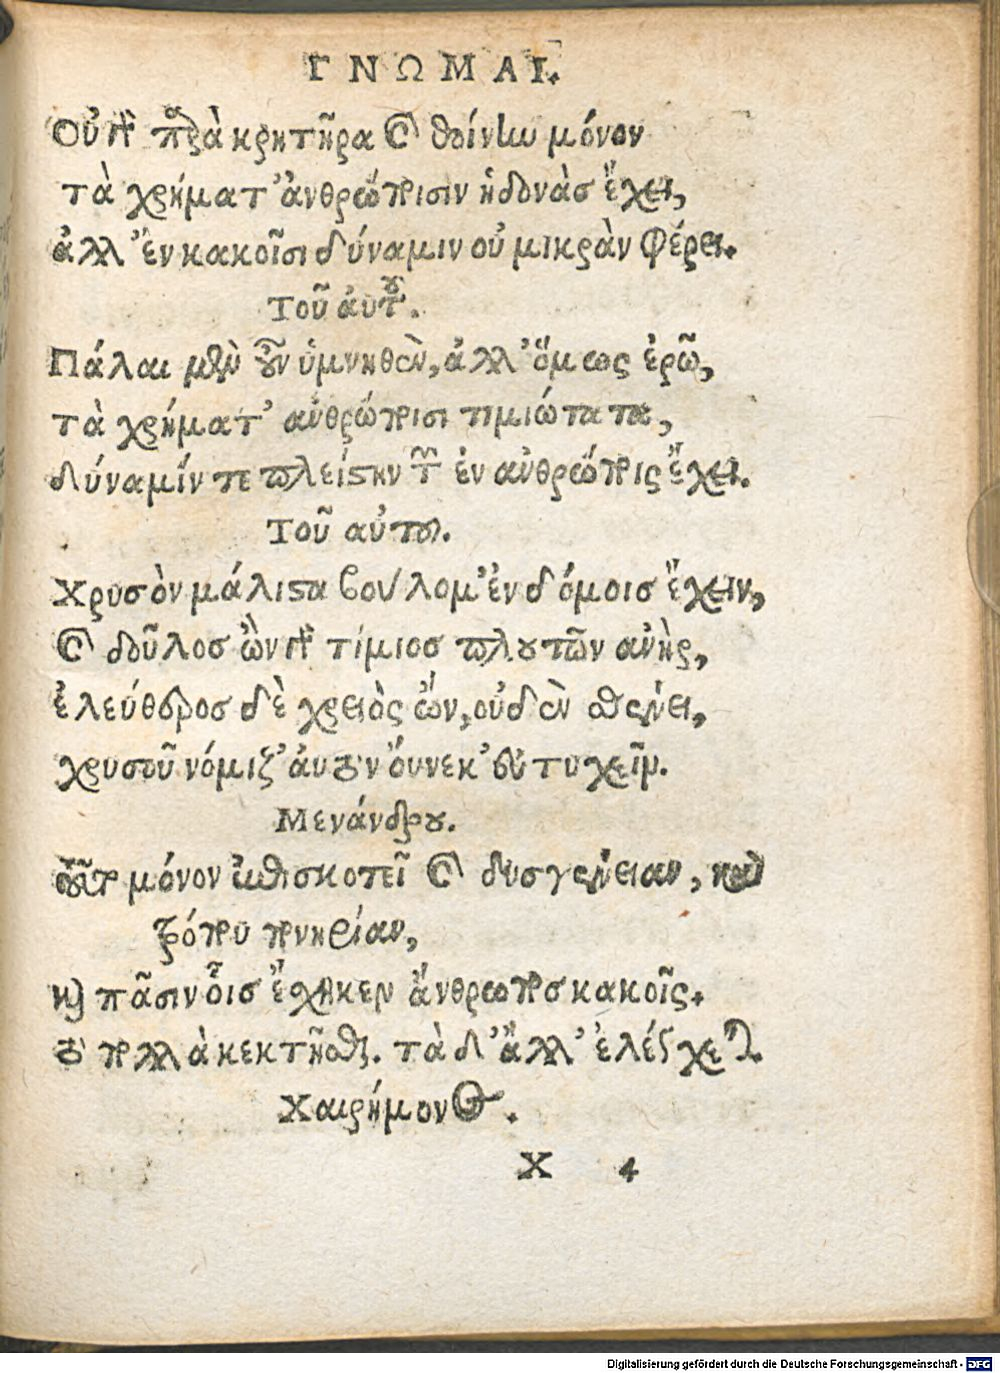 ΓΝΩΜΑΙ.
Οὐ γὰρ παρὰ κρητῆρα καὶ θοίνην μόνον
τὰ χρήματ' ἀνθρώποισιν ἡδονὰς ἔχει,
ἀλλ' ἐν κακοῖσι δύναμιν οὐ μικρὰν φέρει.
Τοῦ αὐτοῦ.
Πάλαι μὲν οὖν ὑμνηθὲν, ἀλλ' ὅμως ἐρῶ,
τὰ χρήματ' ἀνθρώποισι τιμιώτατα,
δύναμίν τε πλείστην τῶν ἐν ἀνθρώποις ἔχει.
Τοῦ αὐτοῦ.
Χρυσὸν μάλιστα βούλομ' ἐν δόμοις ἔχειν,
καὶ δοῦλος ὢν γὰρ τίμιος πλουτῶν ἀνὴρ,
ἐλεύθερος δὲ χρειὸς ὤν, οὐδὲν σθένει,
χρυσοῦ νόμιζ' αυτὸν οὕνεκ' εὐτυχεῖν.
Μενάνδρου.
Τοῦτο μόνον ἐπισκοτεῖ καὶ δυσγενείαν, καὶ
τρόπου πονηρίαν,
καὶ πᾶσιν οἷς ἔσχηκεν ἄνθρωπος κακοῖς.
τὸ πολλὰ κεκτῆσθαι. τὰ δ' ἄλλ' ἐλέγχεται.
Χαιρήμονος.
X 4
Digitalisierung gefördert durch die Deutsche Forschungsgemeinschaft - DFG